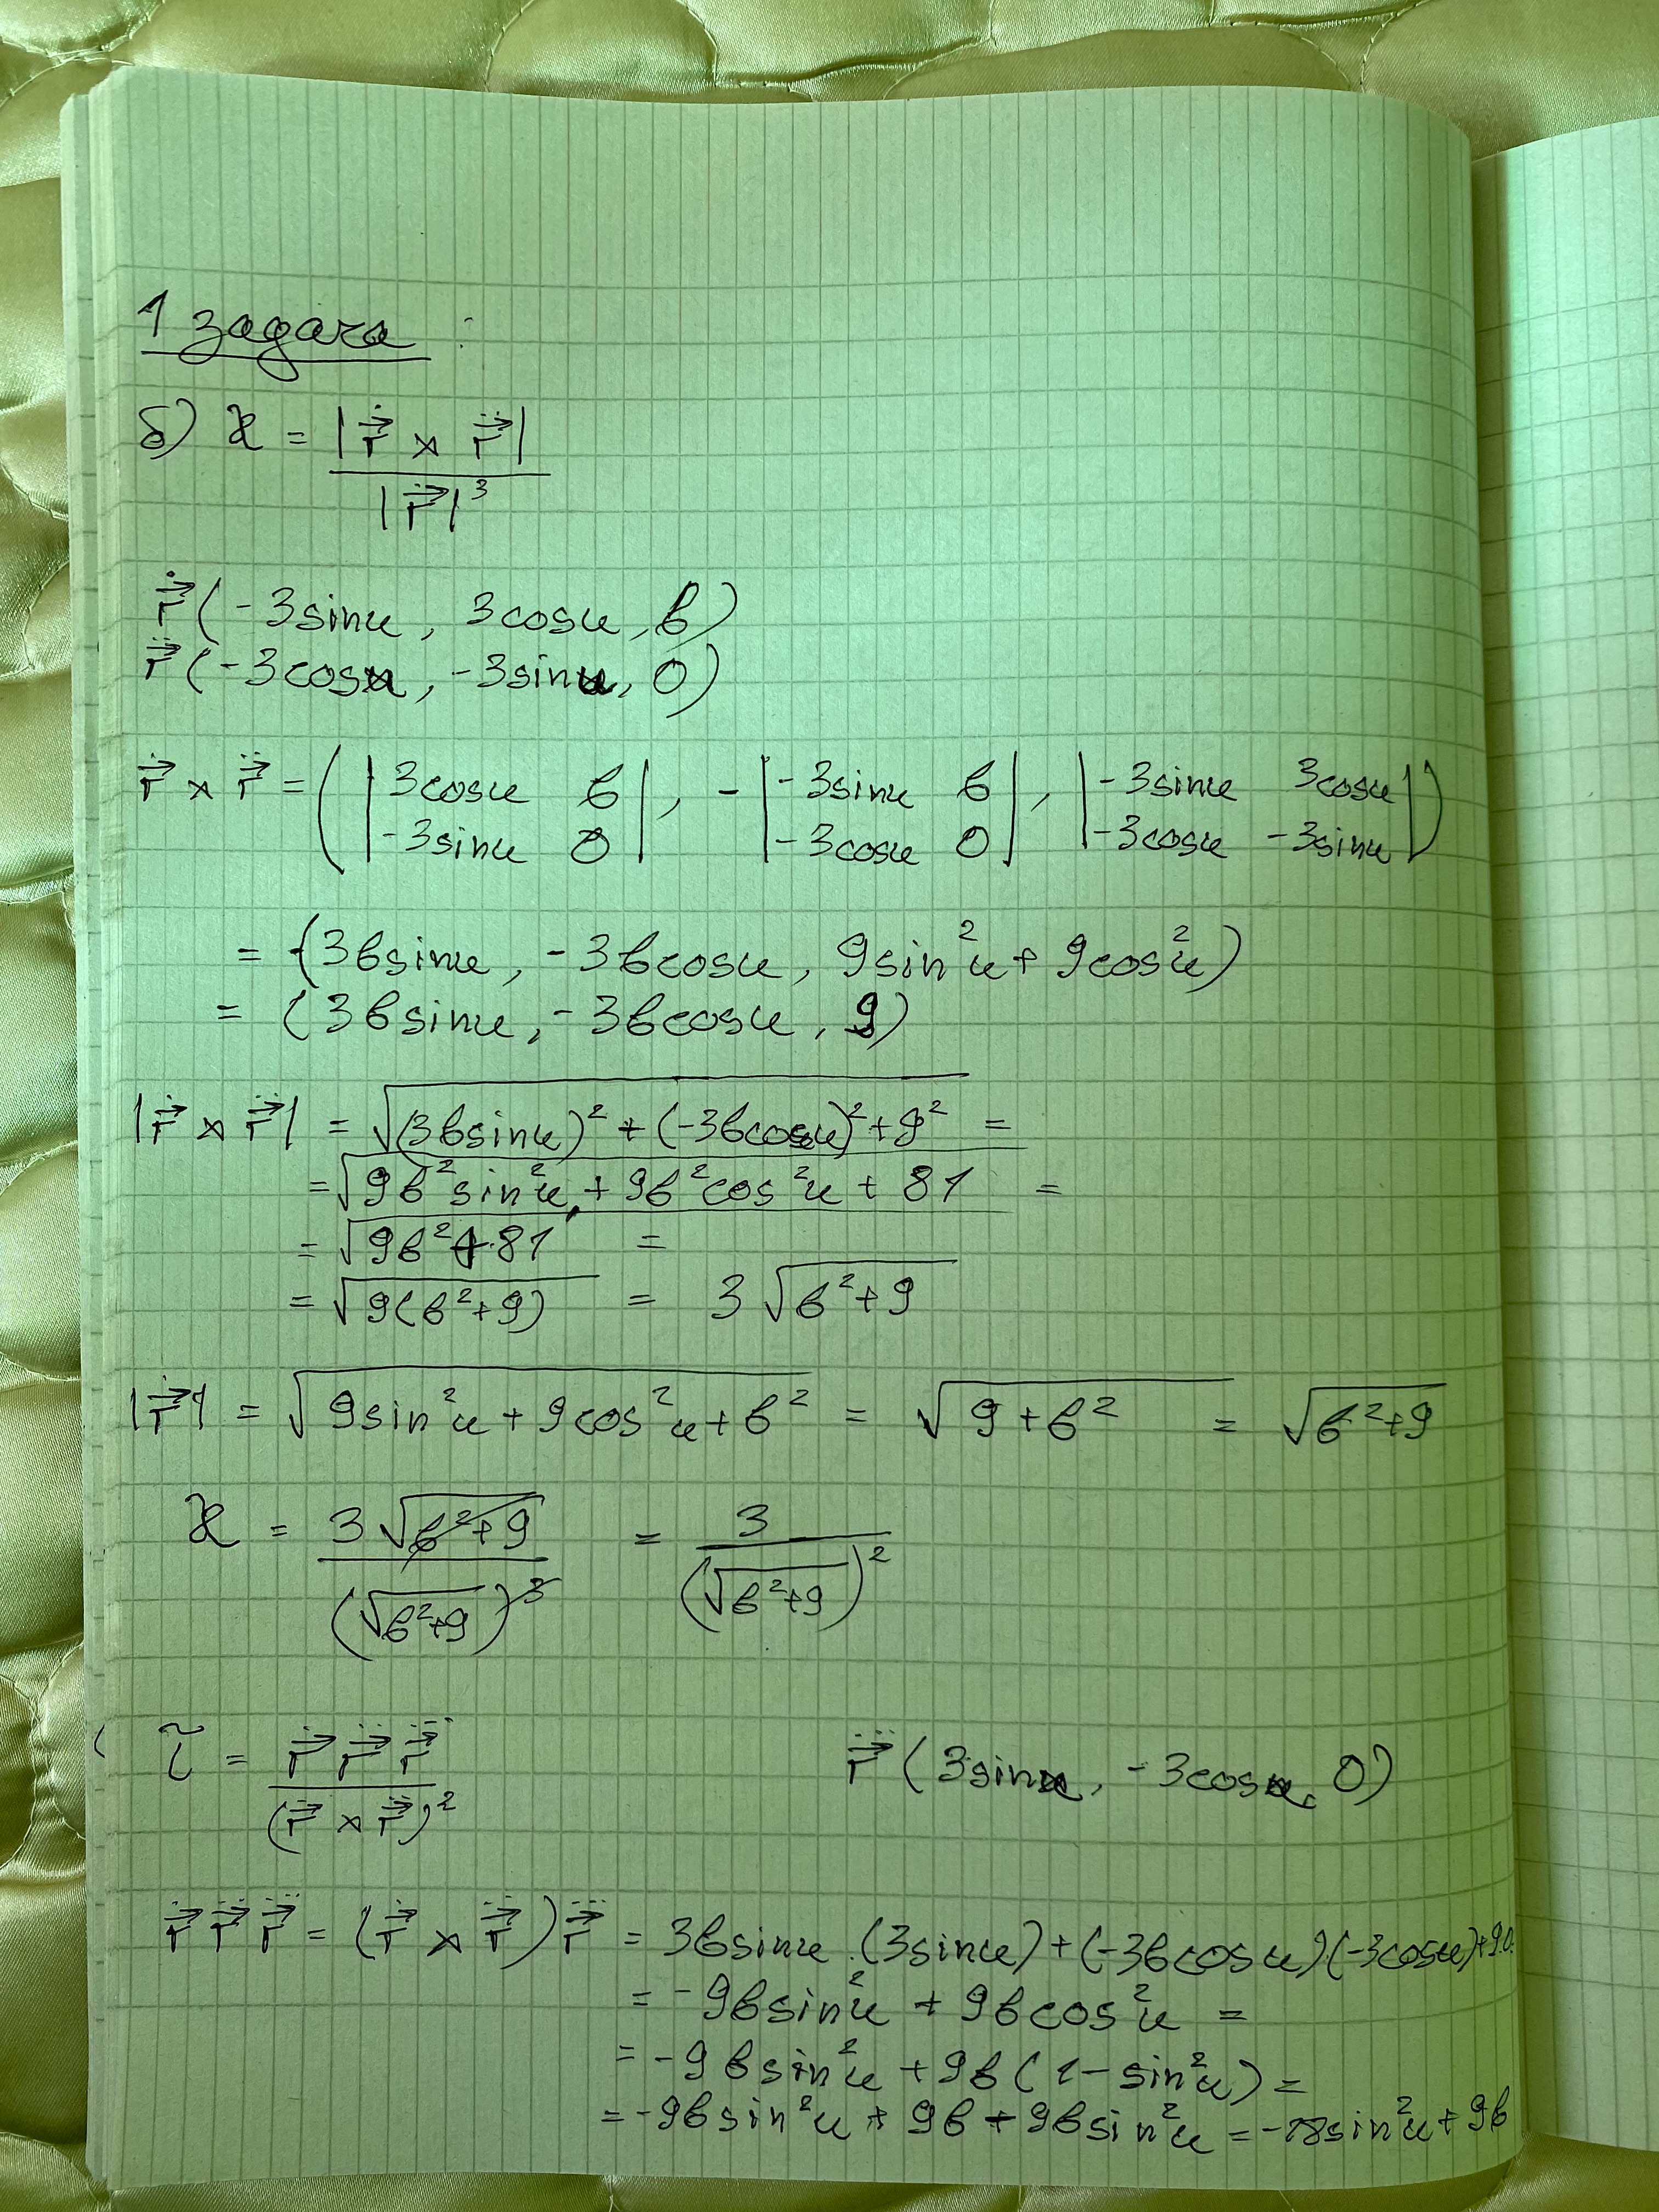 1 задача :
б) ϰ = |ṙ⃗ × r̈⃗| / |ṙ⃗|³
ṙ⃗ (-3sinu, 3cosu, b)
r̈⃗ (-3cosu, -3sinu, 0)
ṙ⃗ × r̈⃗ = ( |3cosu b; -3sinu 0|, - |-3sinu b; -3cosu 0|, |-3sinu 3cosu; -3cosu -3sinu| )
= (3bsinu, -3bcosu, 9sin²u + 9cos²u)
= (3bsinu, -3bcosu, 9)
|ṙ⃗ × r̈⃗| = √((3bsinu)² + (-3bcosu)² + 9²) =
= √(9b²sin²u + 9b²cos²u + 81) =
= √(9b² + 81) =
= √(9(b²+9)) = 3√(b²+9)
|ṙ⃗| = √(9sin²u + 9cos²u + b²) = √(9 + b²) = √(b²+9)
ϰ = 3√(b²+9) / (√(b²+9))³ = 3 / (√(b²+9))²
τ = ṙ⃗ r̈⃗ r⃛⃗ / (ṙ⃗ × r̈⃗)² r⃛⃗ (3sinu, -3cosu, 0)
ṙ⃗ r̈⃗ r⃛⃗ = (ṙ⃗ × r̈⃗) r⃛⃗ = 3bsinu.(3sinu) + (-3bcosu).(-3cosu) + 9.0
= -9bsin²u + 9bcos²u =
= -9bsin²u + 9b(1-sin²u) =
= -9bsin²u + 9b + 9bsin²u = -18sin²u + 9b